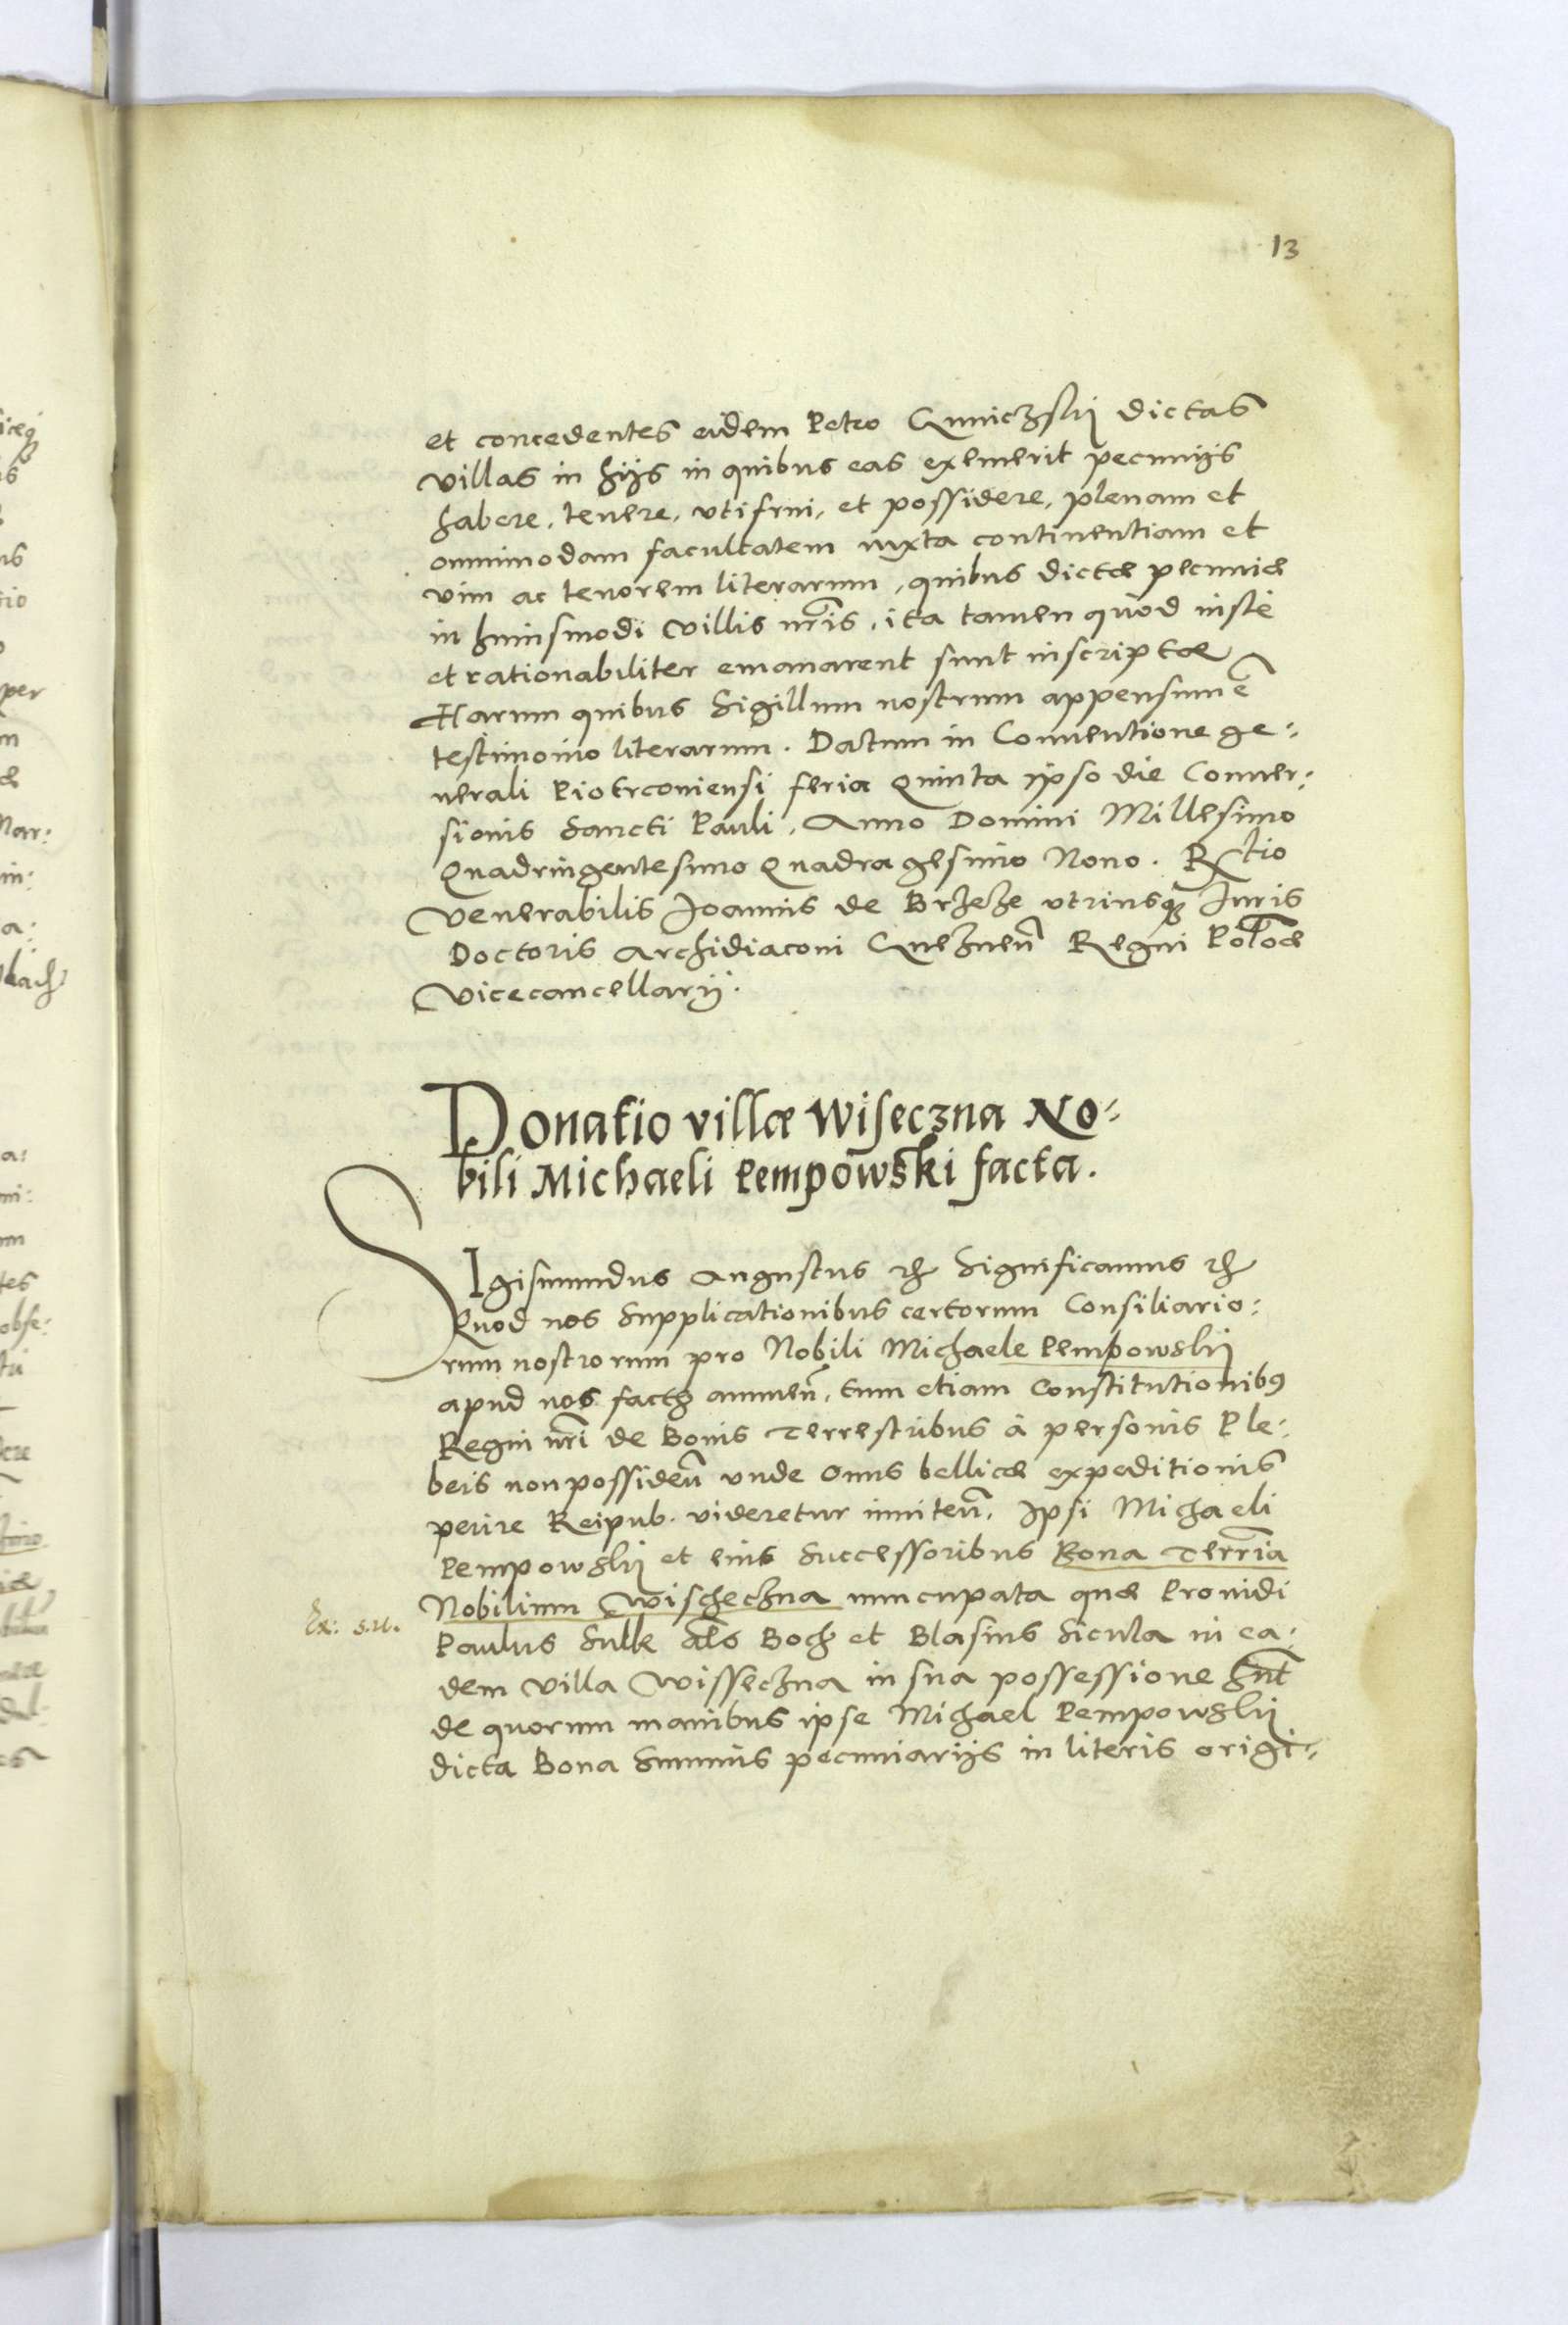 13
et concedentes eidem Petro Gnniczskij dictas
villas in hijs in quibus eas exemerit pecunijs
habere, tenere, vtifrui, et possidere, plenam et
omnimodam facultatem iuxta continentiam et
vim ac tenorem literarum, quibus dictæ pecuniæ
in huiusmodi villis nr̃is, ita tamen quod iustè
et rationabiliter emanarent sunt inscriptæ
Harum quibus Sigillum nostrum appensum ẽ
testimonio literarum. Datum in Conuentione ge:
nerali Piotrcouiensi feria Quinta ipso die Conuer:
sionis Sancti Pauli, Anno Domini Millesimo
Quadringentesimo Quadragesimo Nono. Rtio
Venerabilis Joannis de Brzeze vtriusq Juris
Doctoris Archidiaconi Gneznen̄ Regni Polõæ
Vicecancellarij.
Donatio villæ Wiseczna No:
bili Michaeli Pempowski facta.
SIgismundus Augustus etc Significamus etc
Quod nos Supplicationibus certorum Consiliario:
rum nostrorum pro Nobili Michaele Pempowskij
apud nos factis annuen̄, tum etiam Constitutionibus
Regni nr̃i de Bonis Terrestribus à personis Ple:
beis non possiden̄ vnde Onus bellicæ expeditionis
perire Reipub. videretur inniten̄, Ipsi Michaeli
Pempowskij et eius Successoribus Bona Terr̃ia
Nobilium Wischeczna nuncupata quæ Prouidi
Ex: s.u.
Paulus Sulk al̃s Boch et Blasius Sicula in ea:
dem Villa Wisseczna in sua possessione hn̄t
de quorum manibus ipse Michael Pempowskij
dicta Bona Summis pecuniarijs in literis origi: